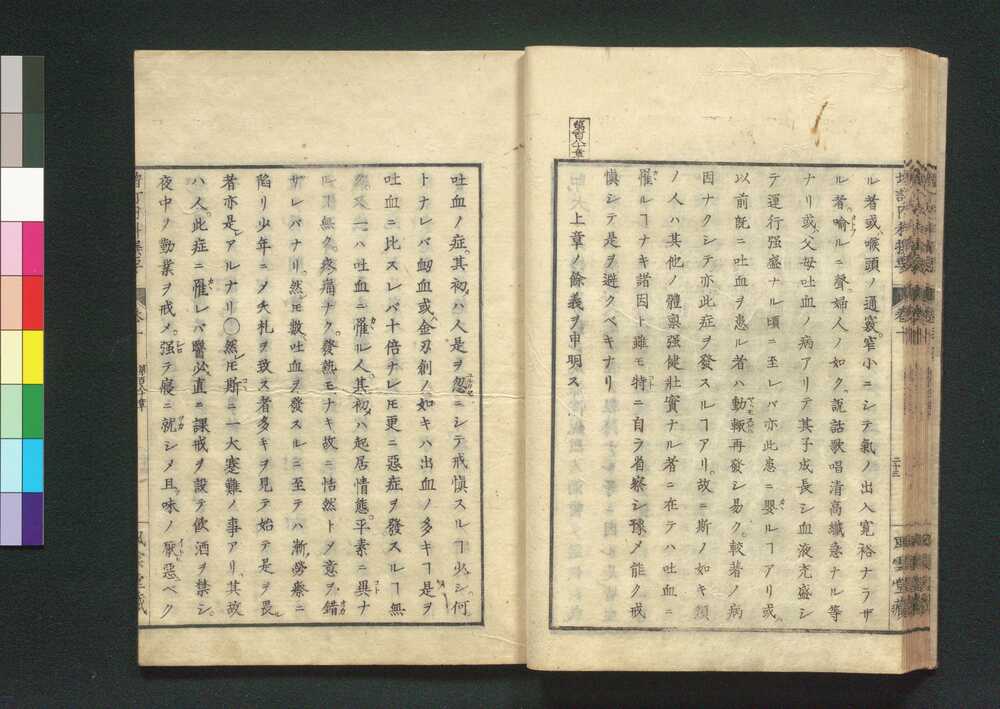 ル者或ハ喉頭ノ通竅窄小ニシテ氣ノ出入寛裕ナラザ
ル者喩ルニ聲婦人ノ如ク、説話歌唱清高纖急ナル等
ナリ或ハ父母吐血ノ病アリテ其子成長シ血液充盛シ
テ運行强盛ナル頃ニ至レバ亦此患ニ嬰ルヿアリ或ハ
以前既ニ吐血ヲ患ル者ハ動輙再發シ易ク。較著ノ病
因ナクシテ亦此症ヲ發スルヿアリ。故ニ斯ノ如キ類
ノ人ハ其他ノ體禀强健壯實ナル者ニ在テハ吐血ニ
罹ルヿナキ諸因ト雖モ特ニ自ラ省察シ豫メ能ク戒
愼シテ是ヲ避クベキナリ
第百八十章
上章ノ餘義ヲ申明ス
吐血ノ症。其初ハ人是ヲ忽ニシテ戒愼スルヿ少シ。何
トナレバ衂血或ハ金刃創ノ如キハ出血ノ多キヿ是ヲ
吐血ニ比スレバ十倍ナレ𪜈更ニ惡症ヲ發スルヿ無
ハ吐血ニ罹ル人。其初メハ起居情態。平素ニ異ナ
ルヿ無ク。疼痛ナク。發熱モナキ故ニ恬然トメ意ヲ錯
ザレバナリ。然𪜈數吐血ヲ發スルニ至テハ漸ク勞瘵ニ
陷リ少年ニメ夭札ヲ致ス者多キヲ見テ始テ是ヲ畏ル
者亦是アルナリ○然レ𪜈斯ニ一大蹇難ノ事アリ。其故
ハ人。此症ニ罹レバ醫必直ニ課戒ヲ設テ飲酒ヲ禁シ。
夜中ノ動業ヲ戒メ。强テ寢ニ就シメ且味ノ厭惡ベク